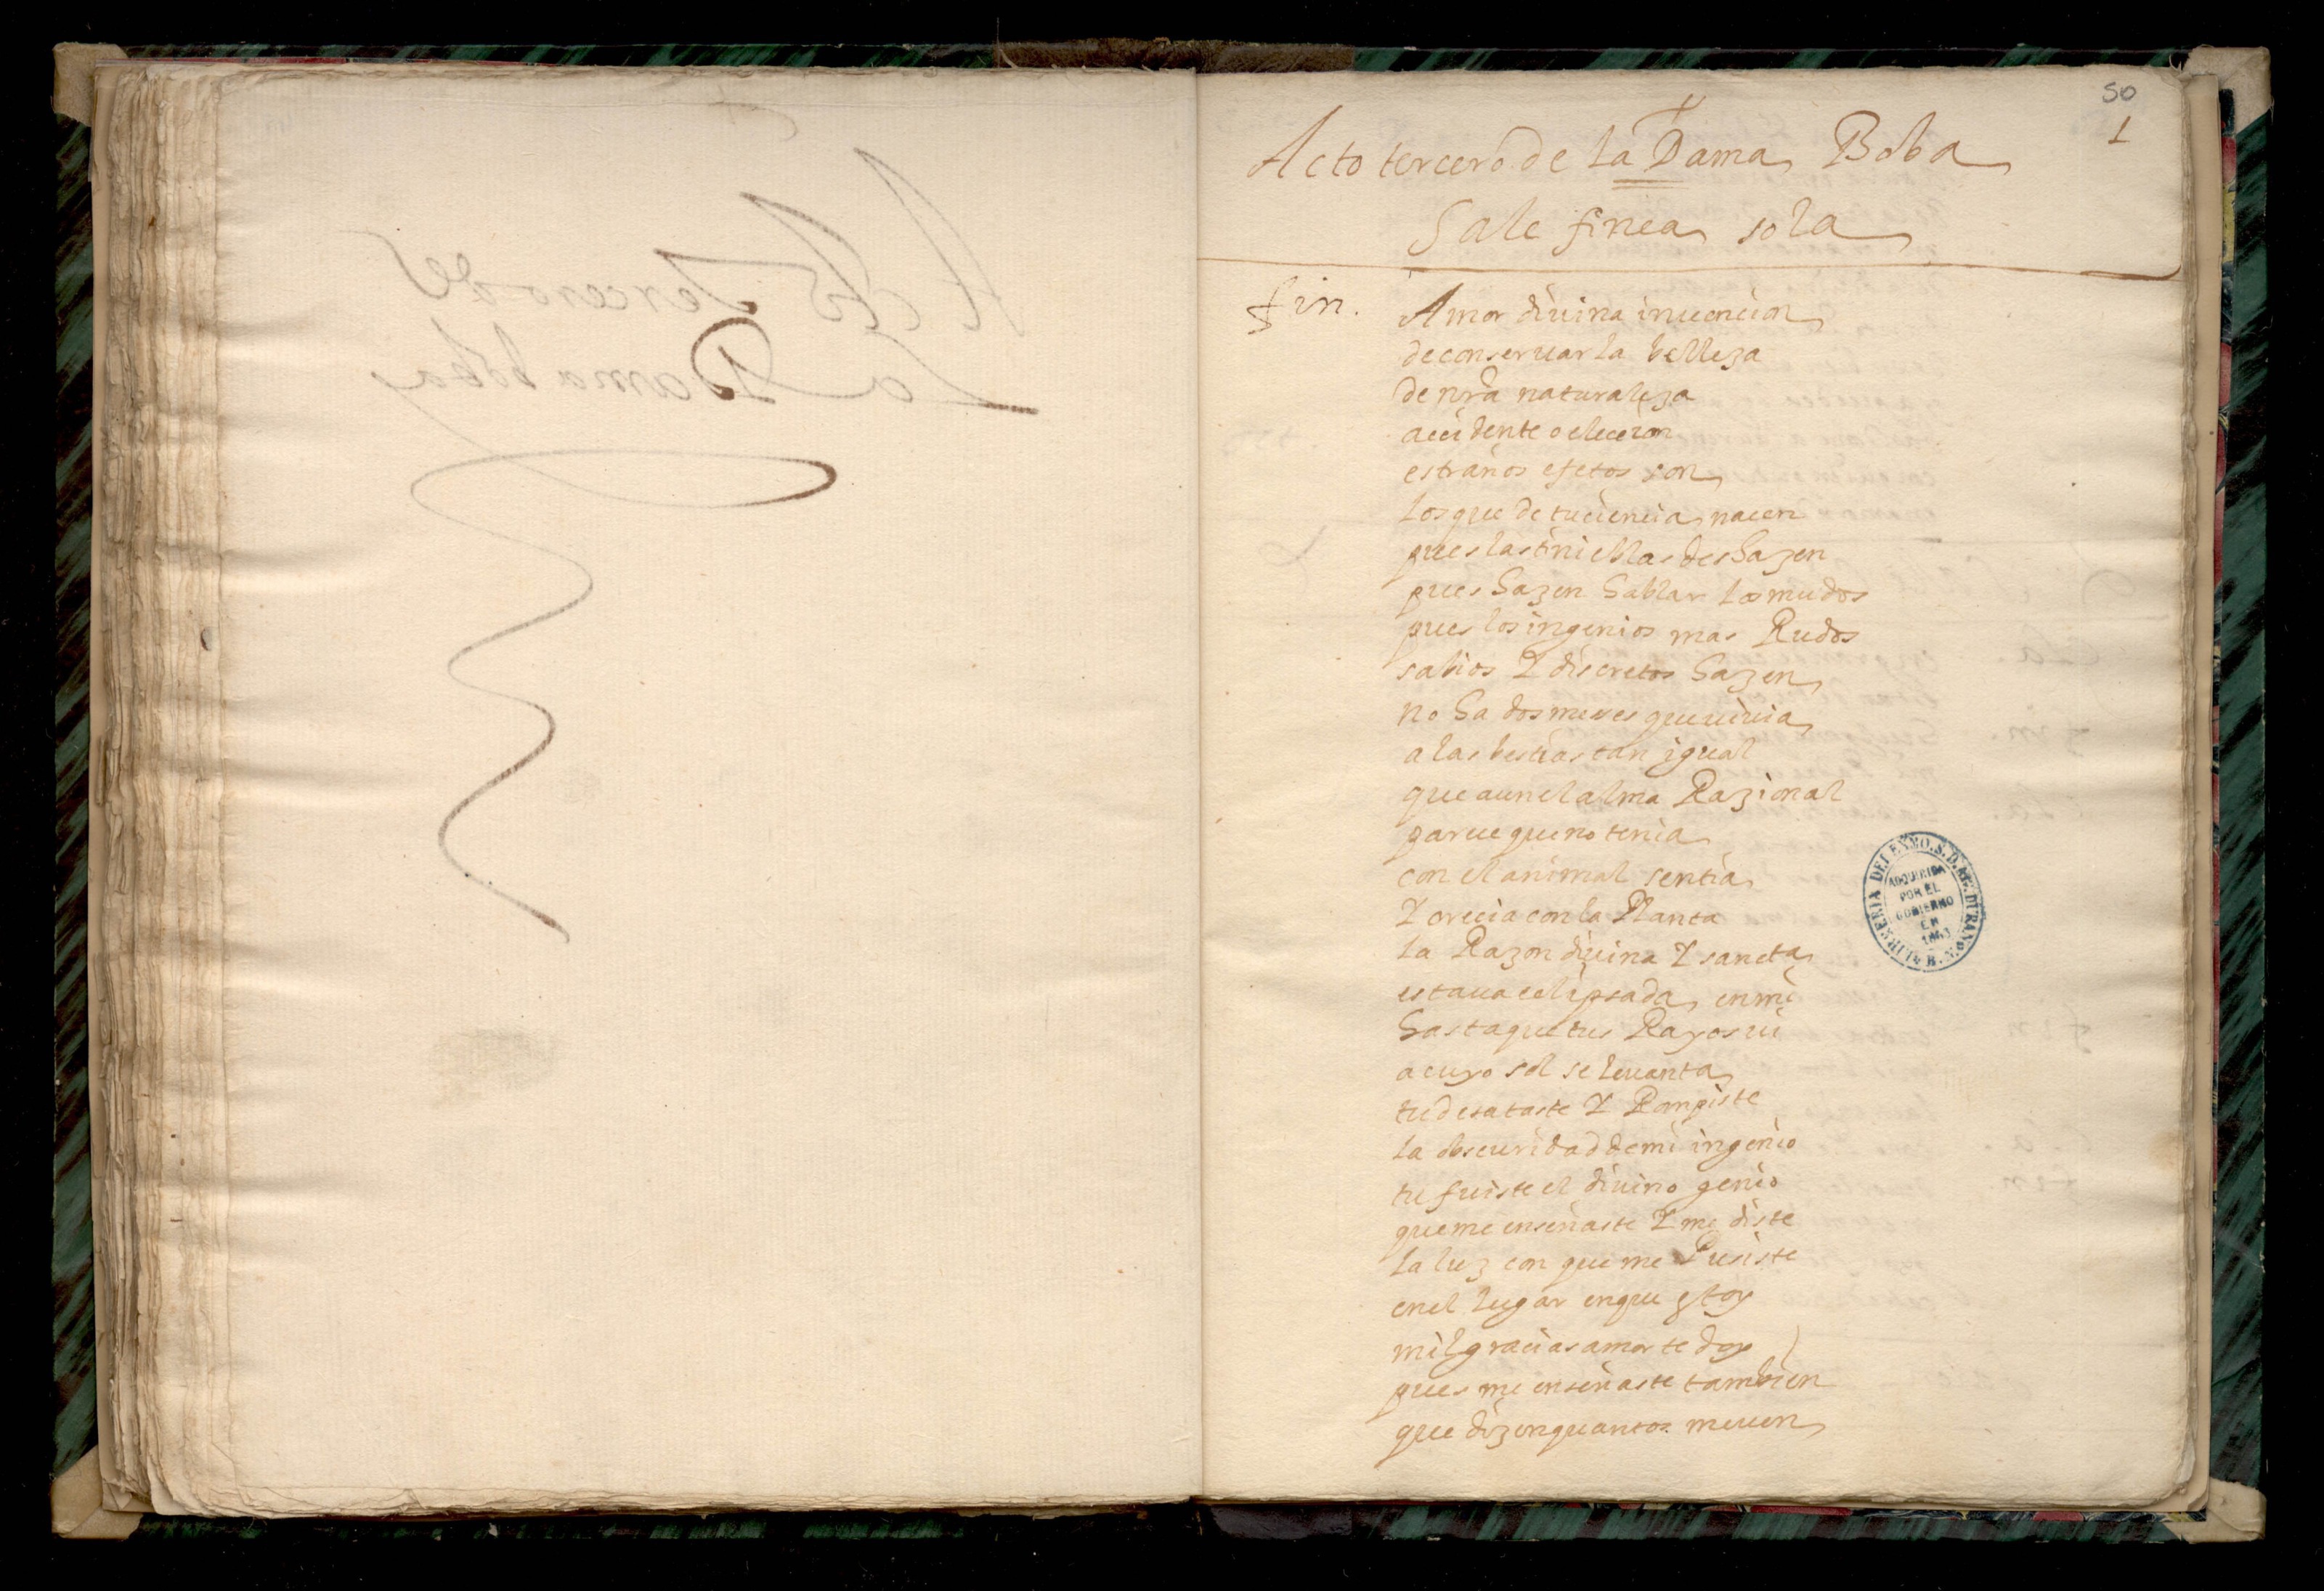 Acto tercero de
la Dama boba
50
1
Acto tercero de la Dama Boba
Sale finea sola
fin. Amor diuina inuencion
de conseruar la belleza
de nrã naturaleza
accidente o eleccion
estraños efetos son
los que de tu ciencia nacen
pues las tinieblas deshazen
pues hazen hablar los mudos
pues los ingenios mas Rudos
sabios Y discretos hazen
no ha dos meses que uiuia
a las bestias tan igual
que aun el alma Razional
parece que no tenia
con el animal sentia
Y crecia con la Planta
la Razon diuina Y sancta
estaua eclipsada en mi
hasta que tus Rayos ui
a cuyo sol se leuanta
tu desataste Y Rompiste
la obscuridad de mi ingenio
tu fuiste el diuino genio
que me enseñaste Y me diste
la luz con que me Pusiste
en el lugar en que estoy
mil gracias amor te doy
pues me enseñaste tambien
que dizen quantos me uen
LIBRERIA DEL EXMO. S. D. AG. DURAN B.N.
ADQUIRIDA
POR EL
GOBIERNO
EN
1863